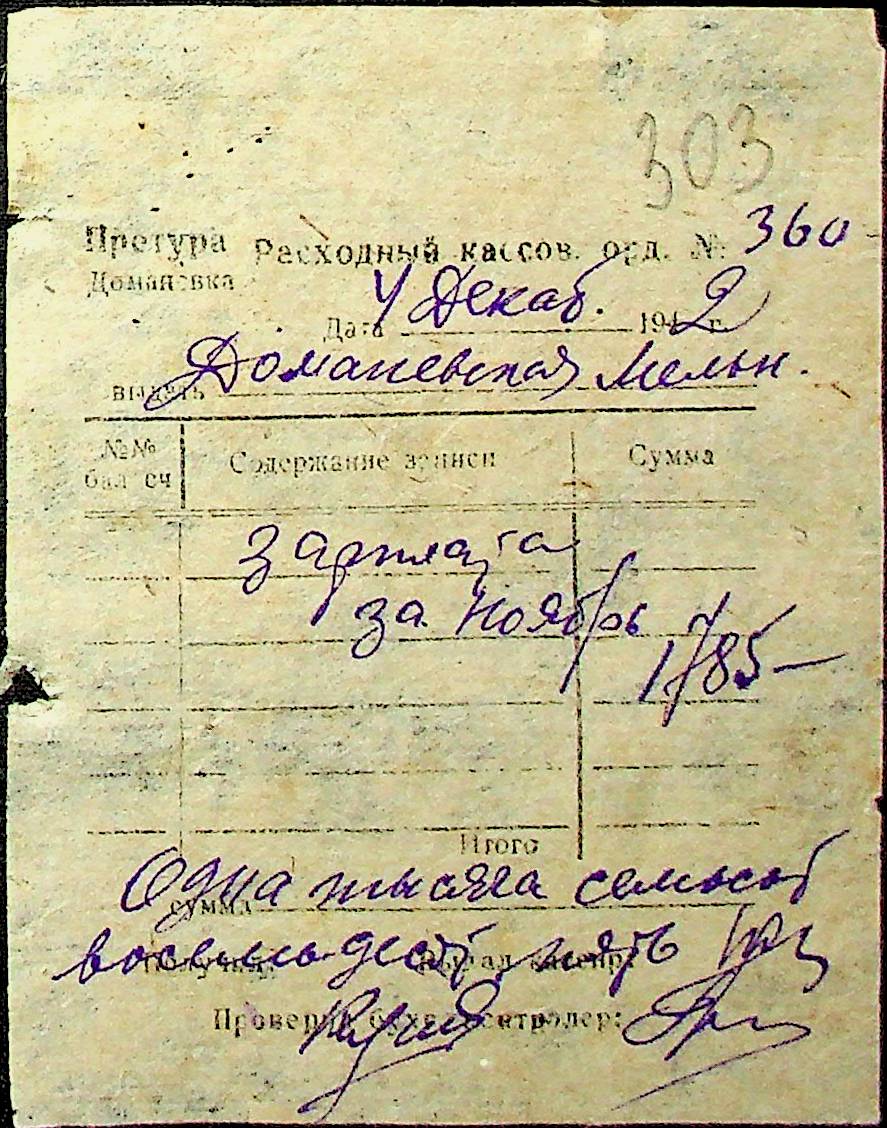 303
Претура Расходный кассов. орд. № 360
Домановка
Дата 4 Декаб. 1942 г.
выдать Доманевская Мельн.
№№ бал сч Содержание записи Сумма
зарплата
за ноябрь
1785—
Итого
сумма Одна тысяча семьсот
восемьдесят пять
Получил: Выдал кассир:
Проверил бухг. контролер: